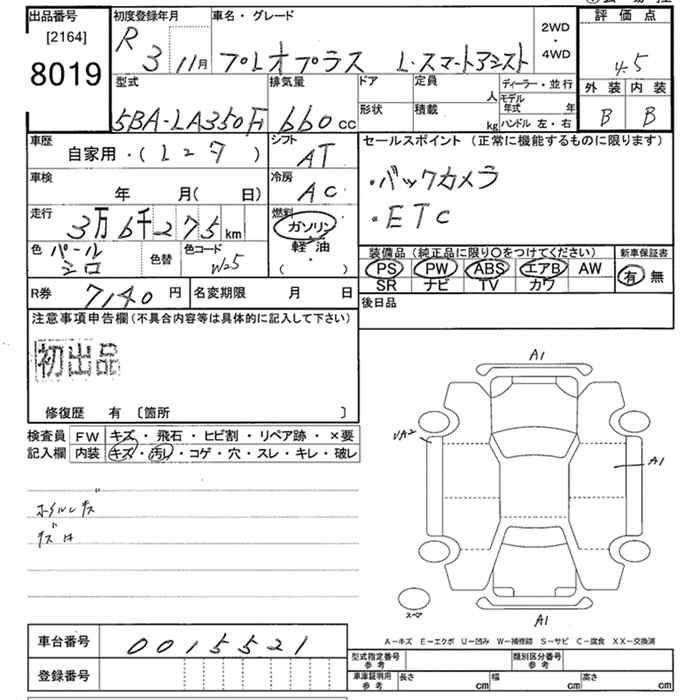 出品番号
[2164]
8019
初度登録年月
R 3 11月
車名・グレード
プレオプラス L・スマートアシスト
2WD
・
4WD
評価点
4.5
外装 内装
B B
型式
5BA-LA350F
排気量
660 cc
ドア
形状
定員 人
積載 kg
ディーラー・並行
モデル年式 年
ハンドル 左・右
車歴
自家用・(レンタ)
シフト
AT
セールスポイント (正常に機能するものに限ります)
・バックカメラ
・ETC
車検
年 月( 日)
冷房
AC
走行
3万6千275km
燃料
ガソリン
軽油
・
( )
色 パールシロ
色替
色コード
W25
装備品 (純正品に限り○をつけてください)
PS PW ABS エアB AW
SR ナビ TV カワ
新車保証書
有 無
R券 7140円
名変期限 月 日
後日品
注意事項申告欄(不具合内容等は具体的に記入して下さい)
初出品
修復歴 有 〔箇所 〕
検査員記入欄
FW キズ・飛石・ヒビ割・リペア跡・×要
内装 キズ・汚レ・コゲ・穴・スレ・キレ・破レ
ホイルキズ
A1
A1
A1
A-キズ E-エクボ U-凹み W-補修跡 S-サビ C-腐食 XX-交換済
車台番号 0015521
登録番号
型式指定番号参考
類別区分番号参考
車庫証明用参考 長さ cm 幅 cm 高さ cm